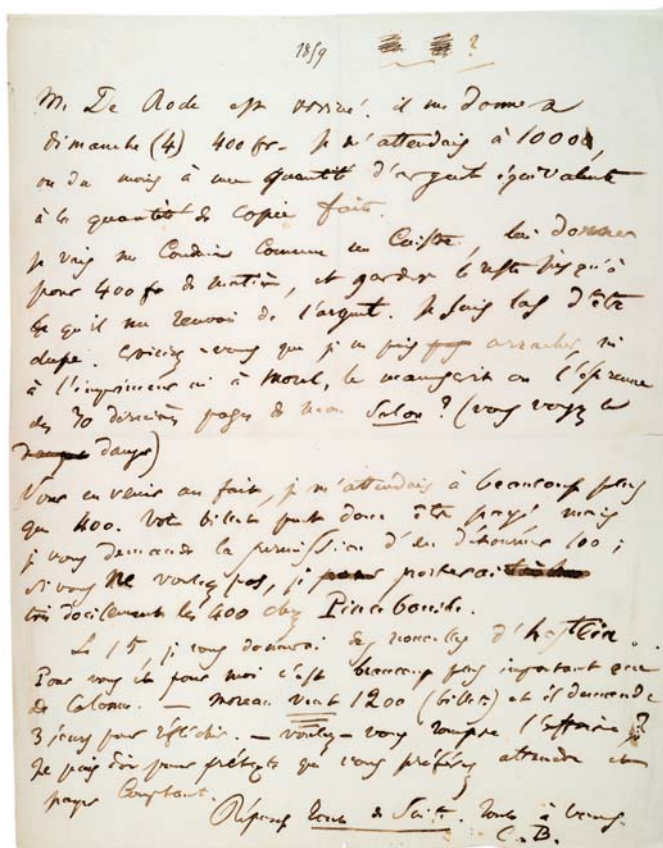 1859 ?
M. De Rode est arrivé. il me donnera
dimanche (4) 400 fr. Je m'attendais à 1000,
ou du moins à une quantité d'argent équivalente
à la quantité de copie faite.
je vais me Conduire Comme un Cuistre, lui donner
pour 400 fr de matière, et garder le reste jusqu'à
ce qu'il me renvoie de l'argent. Je suis las d'être
dupe. Croiriez-vous que je ne puis pas arracher, ni
à l'imprimeur ni à Morel, le manuscrit ou l'épreuve
des 30 dernières pages de mon Salon ? (vous voyez le
danger)
Pour en venir au fait, je m'attendais à beaucoup plus
que 400. Votre billet peut donc être payé mais
je vous demande la permission d'en détourner 100 ;
si vous ne voulez pas, je porterai
très docilement les 400 chez Pincebourde.
Le 15, je vous donnerai des nouvelles d'hostein.
Pour vous et pour moi c'est beaucoup plus important que
de Calonne. — Moreau veut 1200 (billets) et il demande
3 jours pour réfléchir. — voulez-vous rompre l'affaire ?
Je puis dire pour prétexte que vous préférez attendre et
payer Comptant.
Réponse tout de Suite. Tout à vous.
C. B.